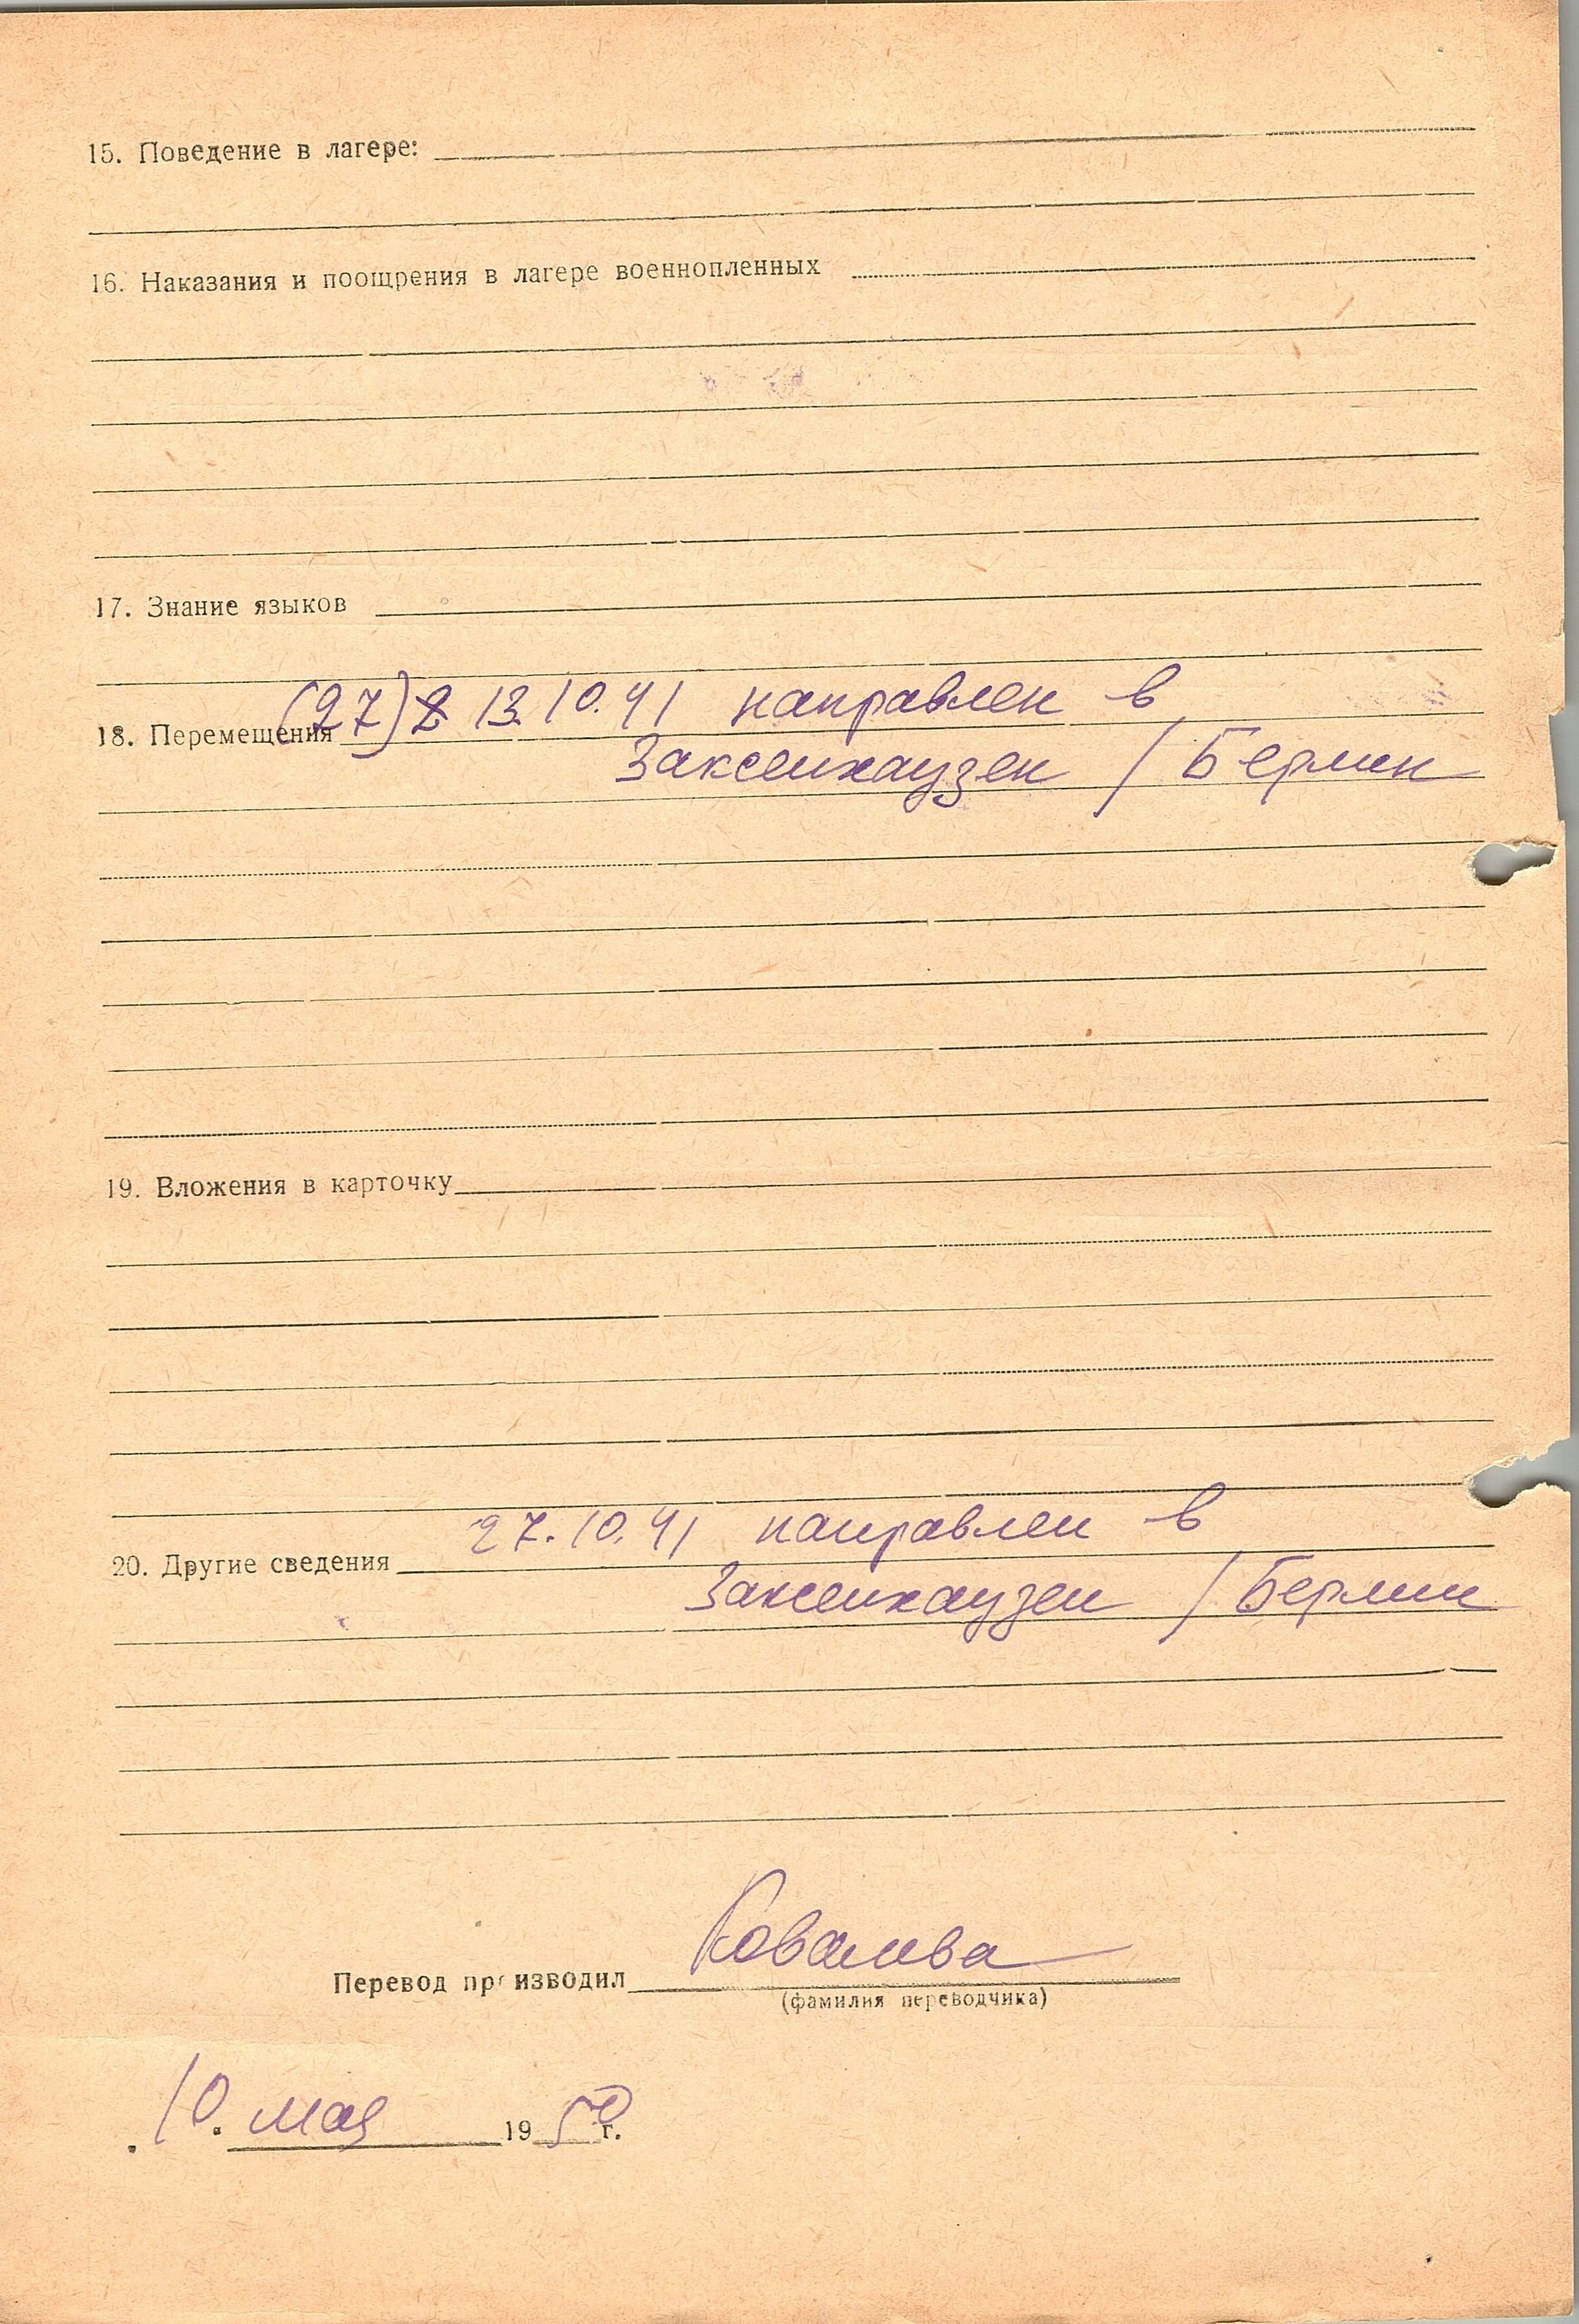 15. Поведение в лагере:
16. Наказания и поощрения в лагере военнопленных
17. Знание языков
(27) 13.10.41 направлен в
18. Перемещения
Заксенхаузен / Берлин
19. Вложения в карточку
27.10.41 направлен в
20. Другие сведения
Заксенхаузен / Берлин
Ковалева
Перевод производил
(фамилия переводчика)
10. мая 1950 г.